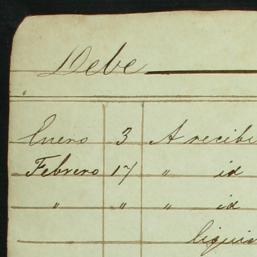 Debe
Enero 3 A recibi
Febrero 17 " id
" " " id
liquid